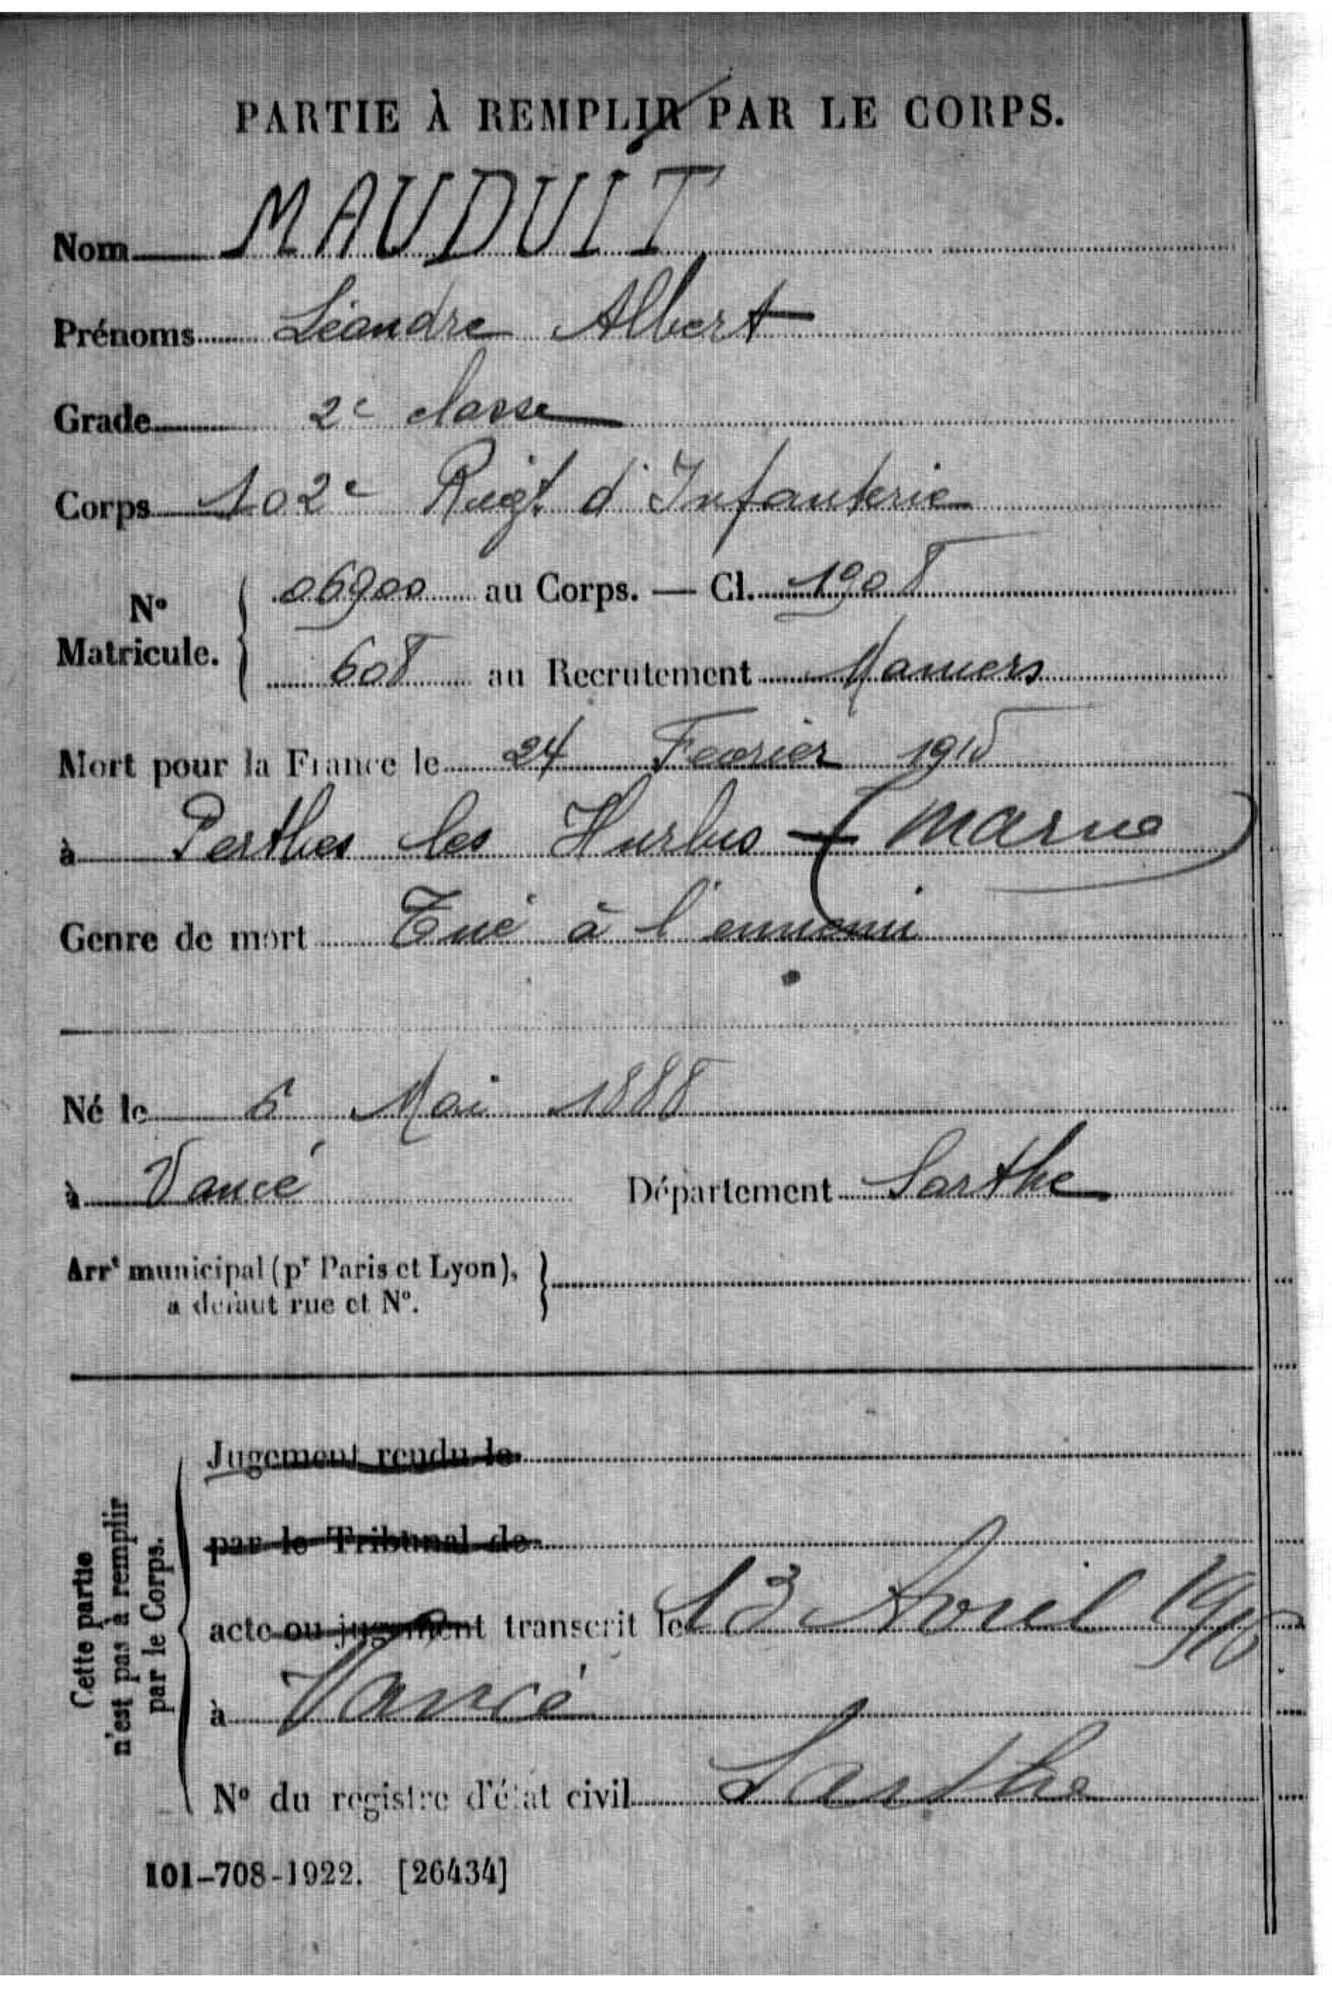 PARTIE À REMPLIR PAR LE CORPS.
Nom MAUDUIT
Prénoms Léandre Albert
Grade 2e classe
Corps 102e Régt d'Infanterie
N° Matricule. 06900 au Corps. — Cl. 1908
608 au Recrutement Mamers
Mort pour la France le 24 Fevrier 1915
à Perthes les Hurlus (Marne)
Genre de mort Tué à l'ennemi
Né le 6 Mai 1888
à Vancé Département Sarthe
Arrt municipal (pr Paris et Lyon),
a défaut rue et N°.
Cette partie
n'est pas à remplir
par le Corps.
Jugement rendu le
par le Tribunal de
acte ou jugement transcrit le 13 Avril
à Vancé
N° du registre d'état civil Sarthe
101-708-1922. [26434]